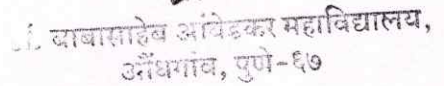 डॉ. बाबासाहेब आंबेडकर महाविद्यालय,
औंधगांव, पुणे-६७